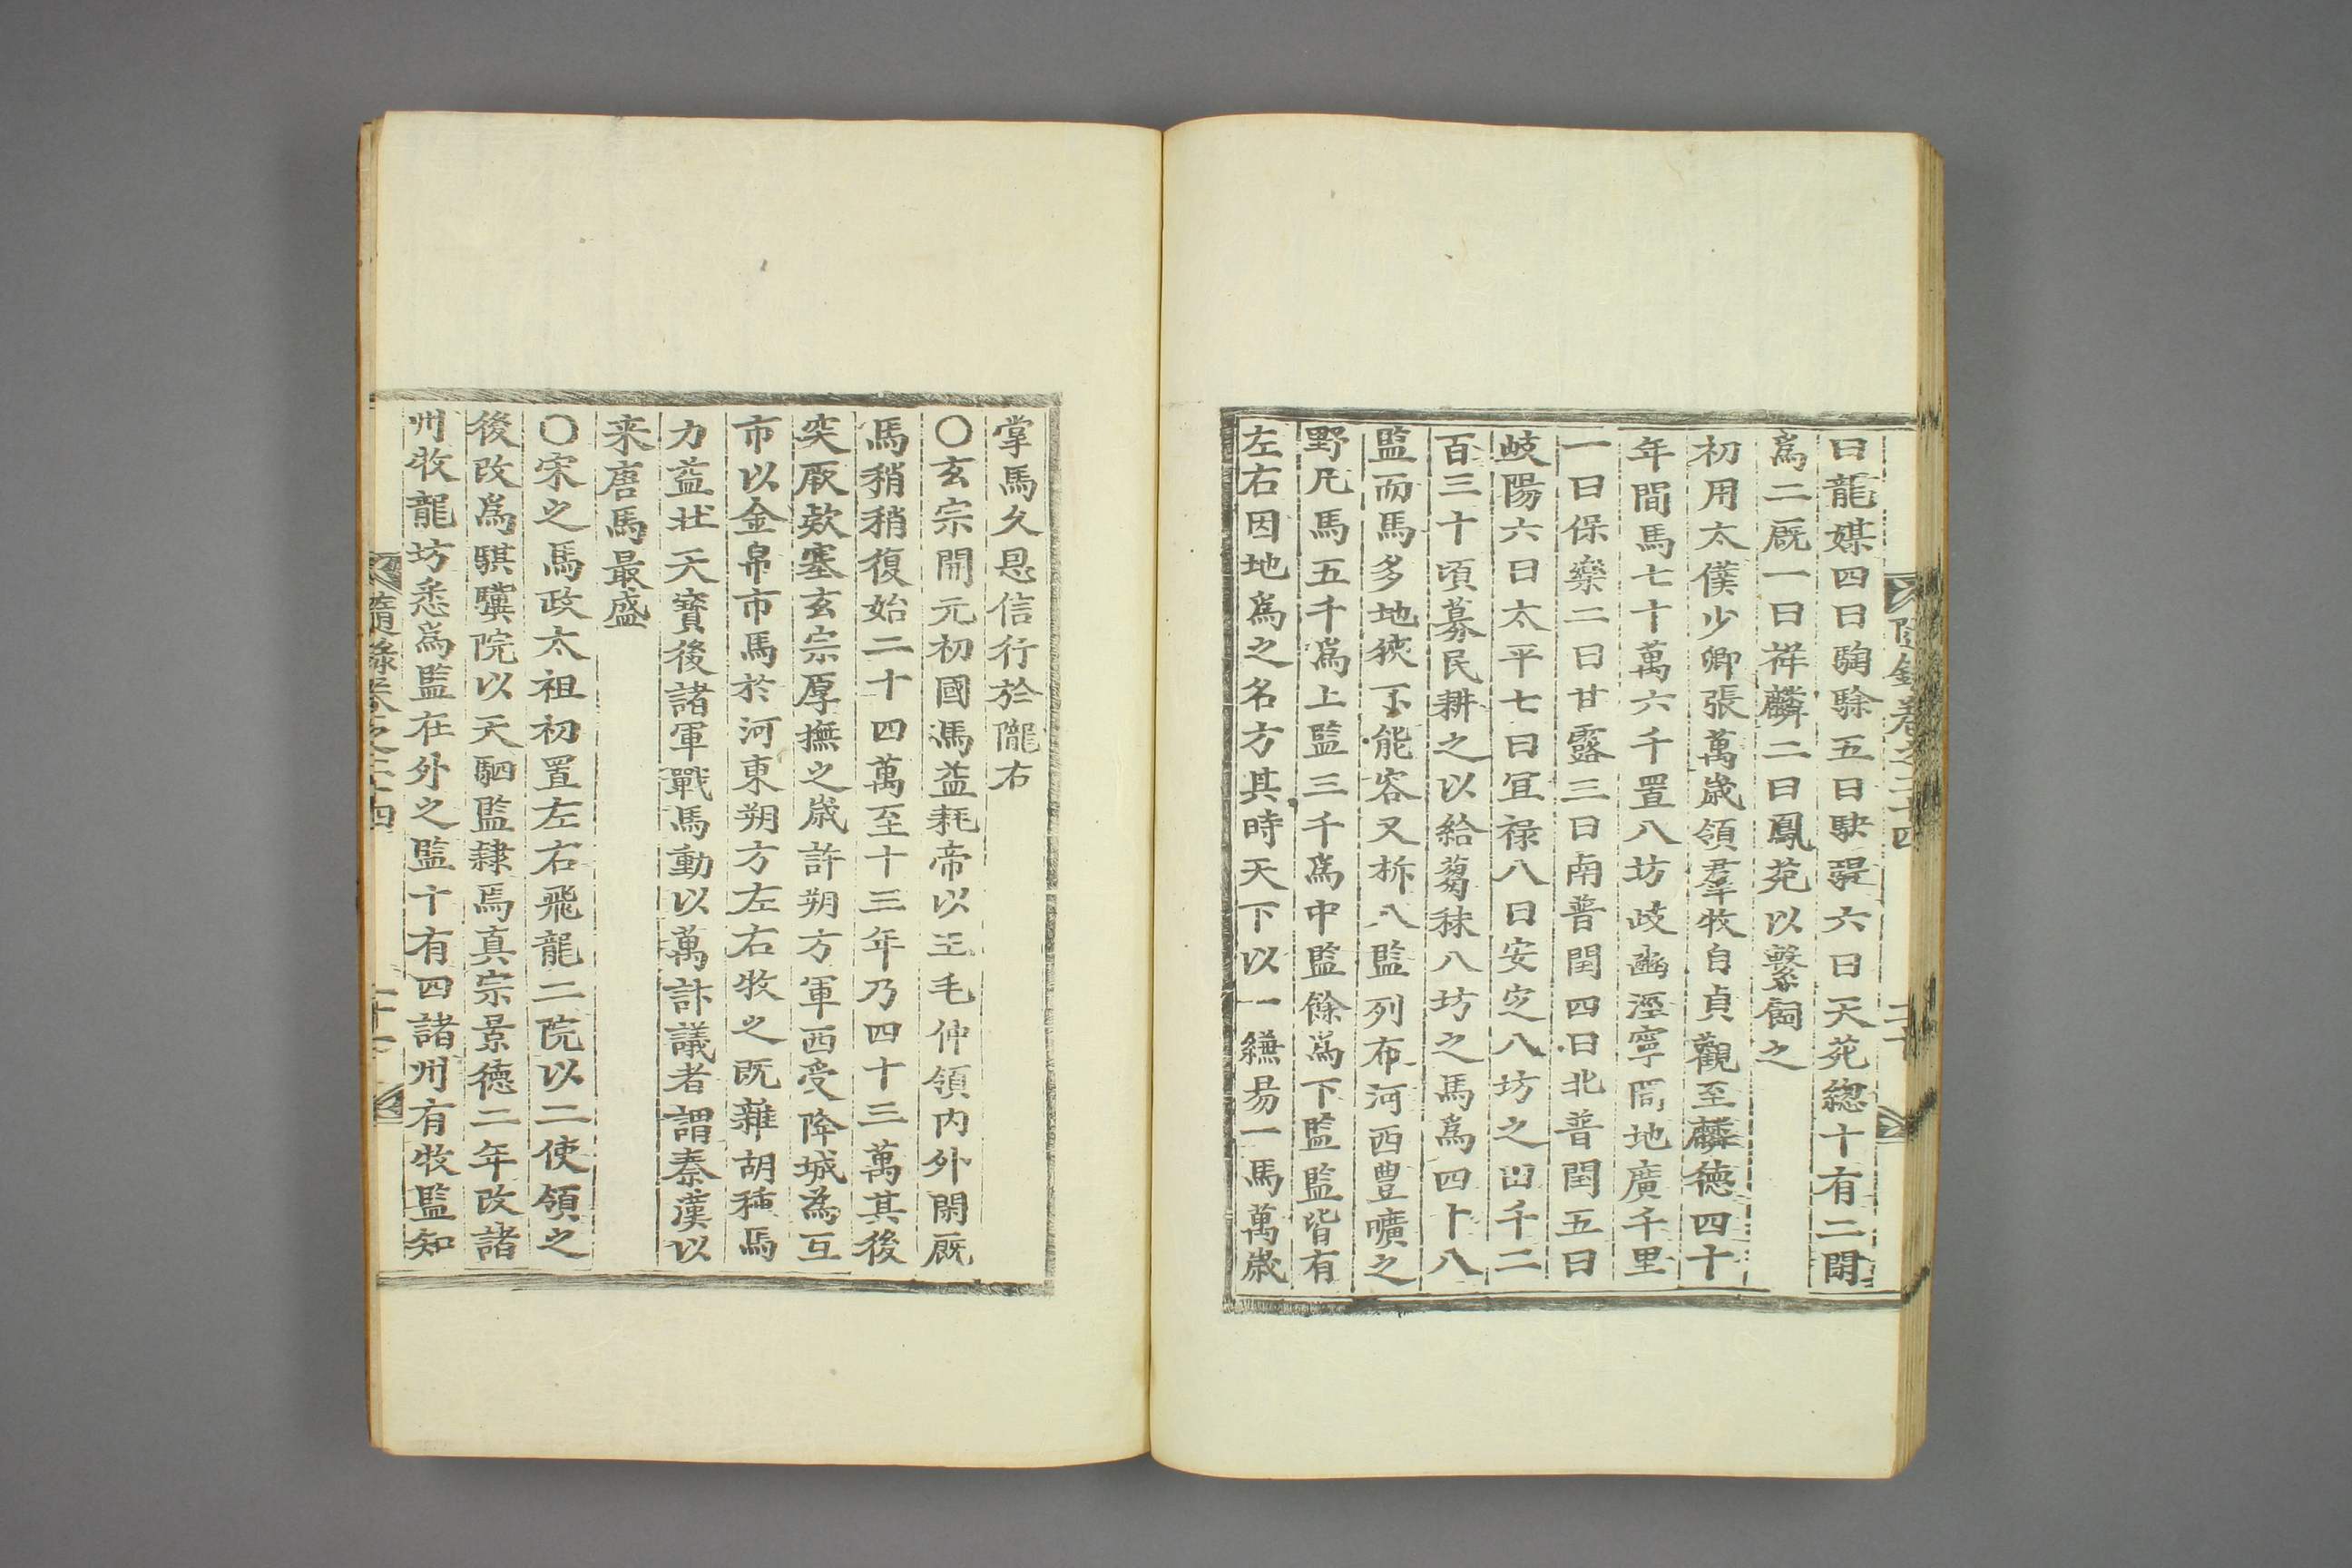 曰龍媒四曰騊駼五曰駃騠六曰天苑緫十有二閑
爲二厩一曰祥麟二曰鳳苑以繫飼之
初用太僕少卿張萬歲領羣牧自貞觀至麟德四十
年間馬七十萬六千置八坊岐豳涇寧間地廣千里
一曰保樂二曰甘露三曰南普閏四曰北普閏五曰
岐陽六曰太平七曰宜禄八曰安定八坊之田千二
百三十頃募民耕之以給蒭秣八坊之馬爲四十八
監而馬多地狹不能容又析八監列布河西豊曠之
野凡馬五千爲上監三千爲中監餘爲下監監皆有
左右因地爲之名方其時天下以一縑易一馬萬歲
掌馬久恩信行於隴右
〇玄宗開元初國馬益耗帝以王毛仲領内外閑厩
馬稍稍復始二十四萬至十三年乃四十三萬其後
突厥欵塞玄宗厚撫之歲許朔方軍西受降城為互
市以金帛市馬於河東朔方左右牧之既雜胡種馬
力益壯天寶後諸軍戰馬動以萬計議者謂秦漢以
来唐馬最盛
〇宋之馬政太祖初置左右飛龍二院以二使領之
後改爲騏驥院以天駟監隷焉真宗景德二年改諸
州牧龍坊悉爲監在外之監十有四諸州有牧監知
隨錄卷之二十四